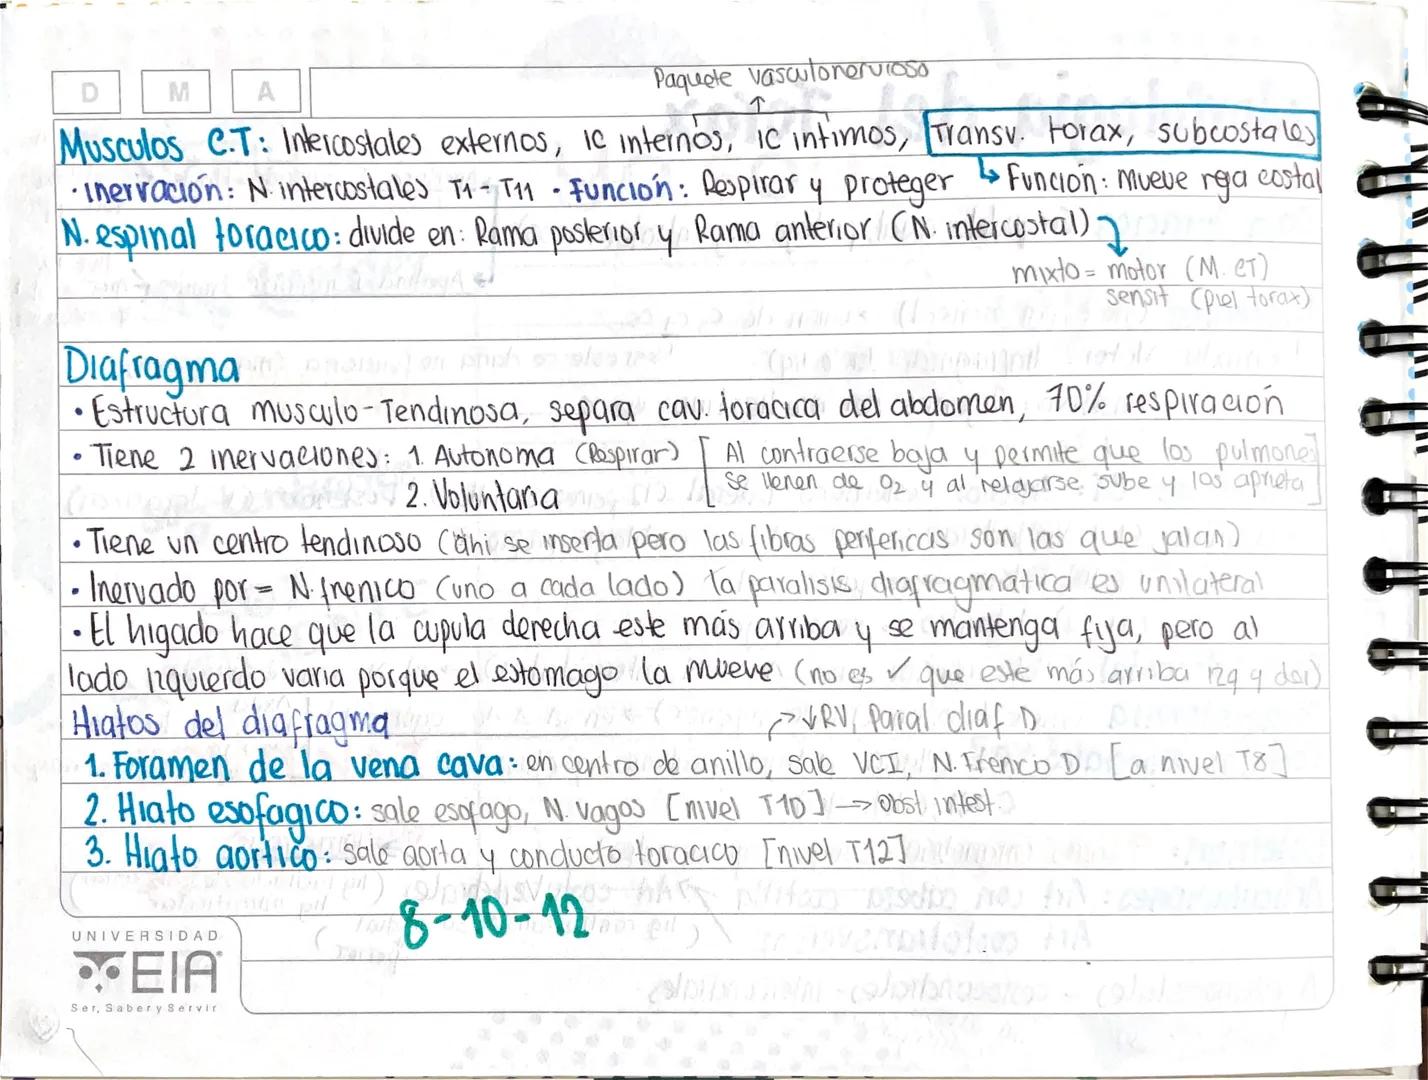 D M A
Paquete vasculonervioso
Musculos C.T: Intercostales externos, IC internos, IC intimos, Transv. torax, subcostales
· Inervación: N. intercostales T1-T11 · Función: Respirar y proteger ↳ Función: Mueve reja costal
N. espinal toracico: divide en: Rama posterior y Rama anterior (N. intercostal)
mixto = motor (M. CT)
sensit (piel torax)
Diafragma
• Estructura musculo-Tendinosa, separa cav. toracica del abdomen, 70% respiración
• Tiene 2 inervaciones: 1. Autonoma (Respirar) [Al contraerse baja y permite que los pulmones
2. Voluntaria se llenen de O2 y al relajarse sube y los aprieta]
• Tiene un centro tendinoso (ahi se inserta pero las fibras perifericas son las que jalan)
• Inervado por = N. frenico (uno a cada lado) la paralisis diafragmática es unilateral
• El higado hace que la cupula derecha este más arriba y se mantenga fija, pero al
lado izquierdo varia porque el estomago la mueve (no es ✓ que este más arriba izq q der)
Hiatos del diafragma → ↓RV, Paral diaf D
1. Foramen de la vena cava: en centro de anillo, sale VCI, N. Frenico D [a nivel T8]
2. Hiato esofagico: sale esofago, N. vagos [nivel T10] → Obst. intest.
3. Hiato aortico: sale aorta y conducto toracico [nivel T12]
8-10-12
UNIVERSIDAD
EIA
Ser, Saber y Servir